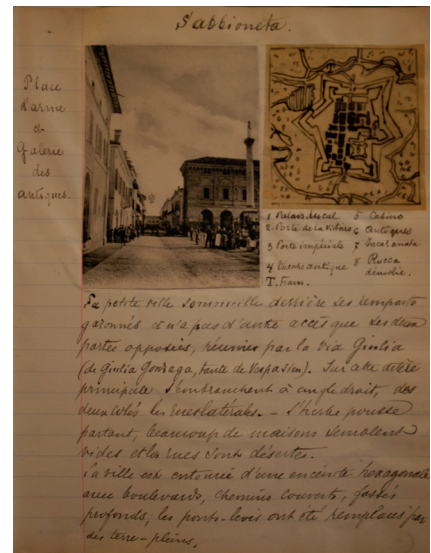 Sabbioneta.
Place
d'arme
et
Galerie
des
antiques.
1 Palais ducal 5 Casino
2. Porte de la Vittoria 6 Antiques
3 Porte impériale 7 Incoronata
4 Théâtre antique 8 Rocca
démolie.
T. Tram.
La petite ville sommeille derrière ses remparts
gazonnés et n'a pas d'autre accès que ses deux
portes opposées, réunies par la Via Giulia
(de Giulia Gonzaga, tante de Vespasien). Sur cette artère
principale s'embranchent à angle droit, des
deux côtés les rues latérales. - L'herbe pousse
partout, beaucoup de maisons semblent
vides et les rues sont désertes.
La ville est entourée d'une enceinte hexagonale
avec boulevards, chemins couverts, fossés
profonds; les ponts-levis ont été remplacés par
des terre-pleins.